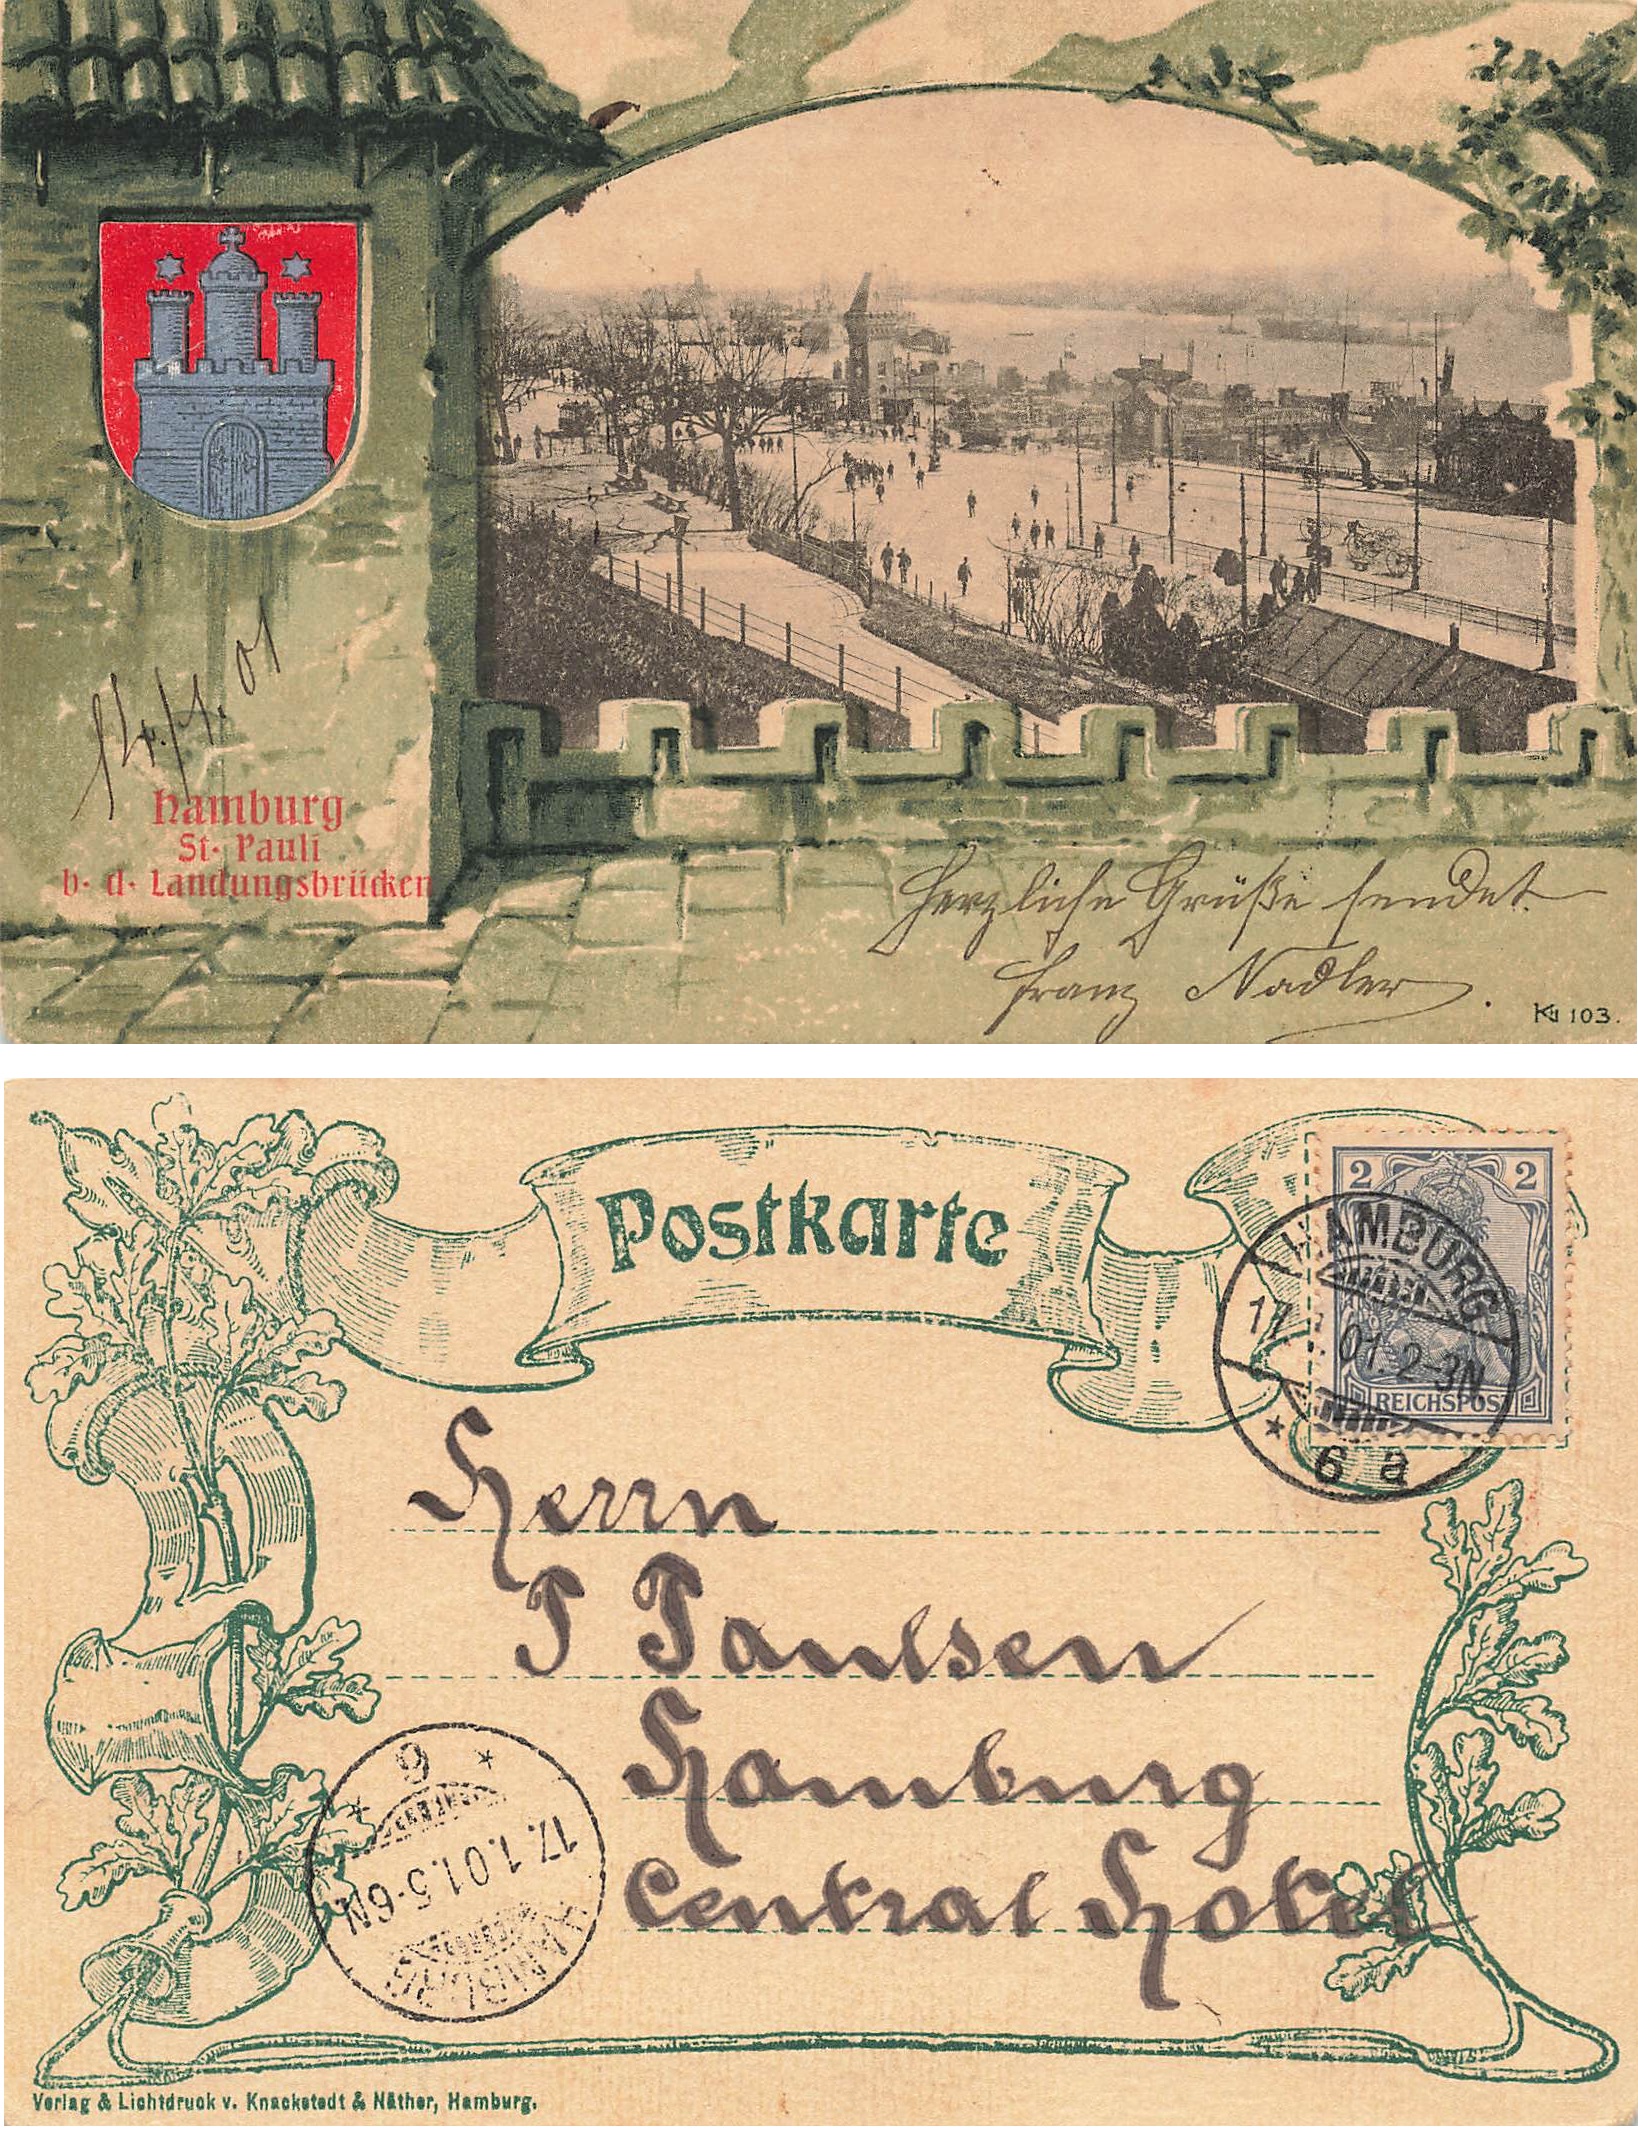 01
Hamburg
St. Pauli
b. d. Landungsbrücken
Herzliche Grüße sendet
Franz Nadler.
103.
Postkarte
2 2
REICHSPOST
HAMBURG
17. 1. 01 2-3N
* 6 a
Herrn
P Paulsen
Hamburg
Central Hotel
HAMBURG
17.1.01.5-6N
* 6 *
Verlag & Lichtdruck v. Knackstedt & Näther, Hamburg.